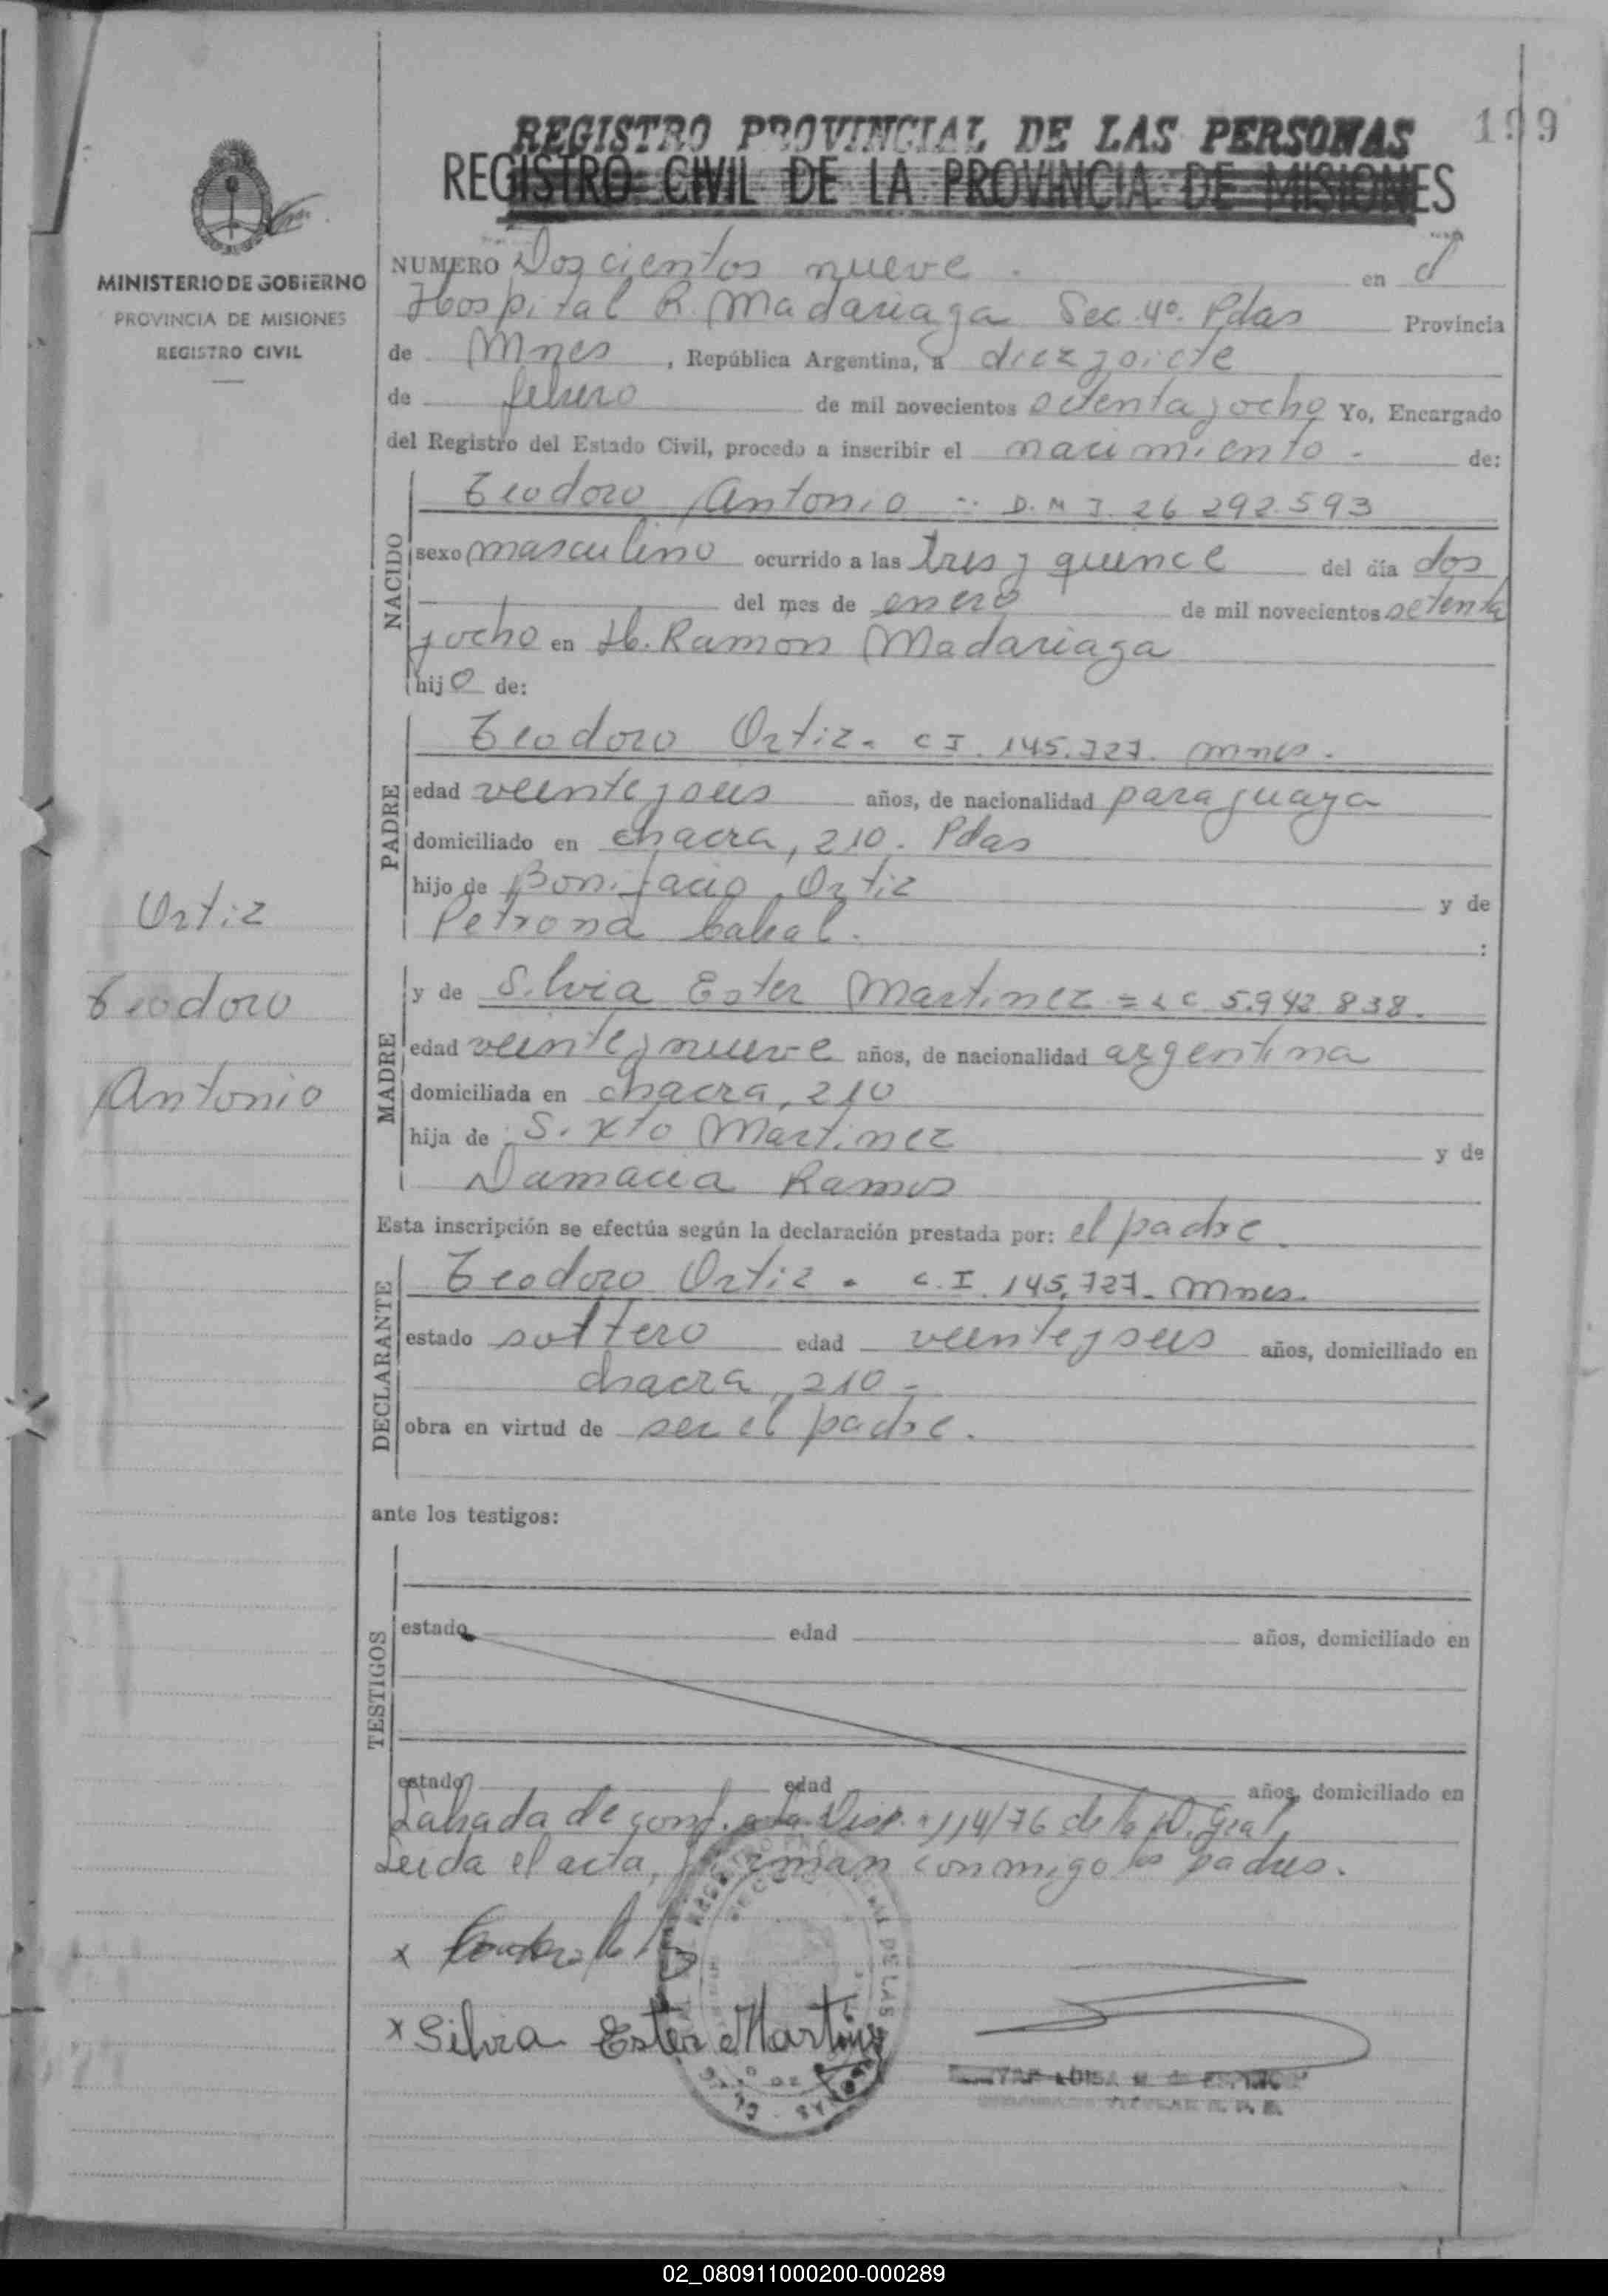 REGISTRO PROVINCIAL DE LAS PERSONAS
199
REGISTRO CIVIL DE LA PROVINCIA DE MISIONES
MINISTERIO DE GOBIERNO
PROVINCIA DE MISIONES
REGISTRO CIVIL
NUMERO Doscientos nueve . en el
Hospital R. Madariaga Sec. 4º. Pdas Provincia
de Mnes , República Argentina, a diezysiete
de febrero de mil novecientos setenta y ocho Yo, Encargado
del Registro del Estado Civil, procedo a inscribir el nacimiento - de:
NACIDO
Teodoro Antonio - D.N.I. 26 292.593
sexo masculino ocurrido a las tres y quince del día dos
del mes de enero de mil novecientos setenta
y ocho en H. Ramon Madariaga
hijo de:
PADRE
Teodoro Ortiz - C I. 145.727. Mnes.
edad veinte y seis años, de nacionalidad paraguaya
domiciliado en chacra, 210. Pdas
hijo de Bonifacio Ortiz y de
Petrona Cabral. :
Ortiz
Teodoro
Antonio
MADRE
y de Silvia Ester Martinez = L C 5.942 838.
edad veinte y nueve años, de nacionalidad argentina
domiciliada en chacra, 210
hija de Sixto Martinez y de
Damacia Ramos
Esta inscripción se efectúa según la declaración prestada por: el padre.
DECLARANTE
Teodoro Ortiz . C. I. 145,727 - Mnes.
estado soltero edad veinte y seis años, domiciliado en
chacra, 210 -
obra en virtud de ser el padre.
ante los testigos:
TESTIGOS
estado edad años, domiciliado en
estado edad años, domiciliado en
Labrada de conf. a la Disp. n 114/76 de la D. Gral,
Leida el acta, firman conmigo los padres.
x
x Silvia Ester Martinez
DE LAS
02_080911000200-000289